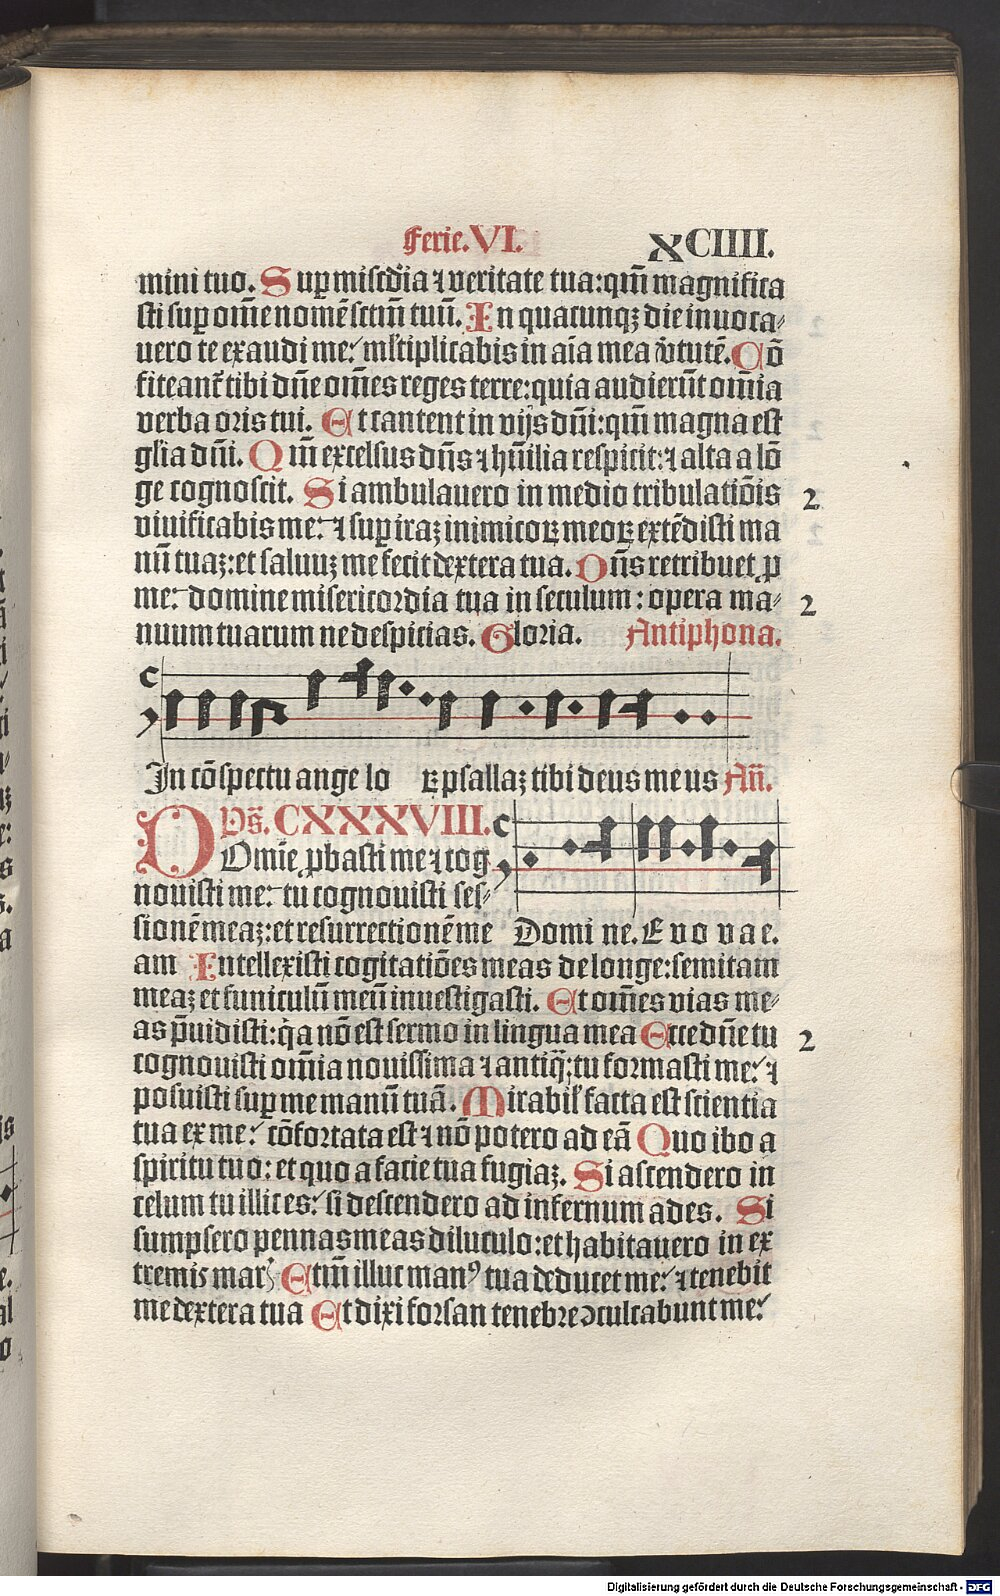 Ferie. VI. XCIIII.
mini tuo. Sup misc̄dia ⁊ veritate tua: qm̄ magnifica
sti sup om̄e nomē sctm̄ tuū. In quacunqꝫ die inuoca⸗
uero te exaudi me: ml̄tiplicabis in aīa mea v̄tutē. Cō
fiteant̄ tibi dn̄e om̄es reges terre: quia audierūt om̄ia
verba oris tui. Et cantent in vijs dn̄i: qm̄ magna est
gl̄ia dn̄i. Qm̄ excelsus dn̄s ⁊ hūilia respicit: ⁊ alta a lō
ge cognoscit. Si ambulauero in medio tribulatiōis 2
viuificabis me: ⁊ sup iraꝫ inimicoꝝ meoꝝ extēdisti ma
nū tuaꝫ: et saluuꝫ me fecit dextera tua. Dn̄s retribuet ꝓ
me: domine misericordia tua in seculum: opera ma⸗ 2
nuum tuarum ne despicias. Gloria. Antiphona.
c
In cōspectu ange lo ꝝ psallaꝫ tibi deus meus An̄.
Ps. CXXXVIII. c
DOmīe ꝓbasti me ⁊ cog
nouisti me: tu cognouisti ses⸗
sionē meaꝫ: et resurrectionē me Domi ne. E vo vae.
am Intellexisti cogitatiōes meas de longe: semitam
meaꝫ et funiculū meū inuestigasti. Et om̄es vias me⸗
as p̄uidisti: q̄a nō est sermo in lingua mea Ecce dn̄e tu 2
cognouisti om̄ia nouissima ⁊ antiq̄: tu formasti me: ⁊
posuisti sup me manū tuā. Mirabil' facta est scientia
tua ex me: cōfortata est ⁊ nō potero ad eā Quo ibo a
spiritu tuo: et quo a facie tua fugiaꝫ. Si ascendero in
celum tu illic es: si descendero ad infernum ades. Si
sumpsero pennas meas diluculo: et habitauero in ex
tremis mar' Etm̄ illuc manꝰ tua deducet me: ⁊ tenebit
me dextera tua Et dixi forsan tenebre ↄculcabunt me:
Digitalisierung gefördert durch die Deutsche Forschungsgemeinschaft - DFG